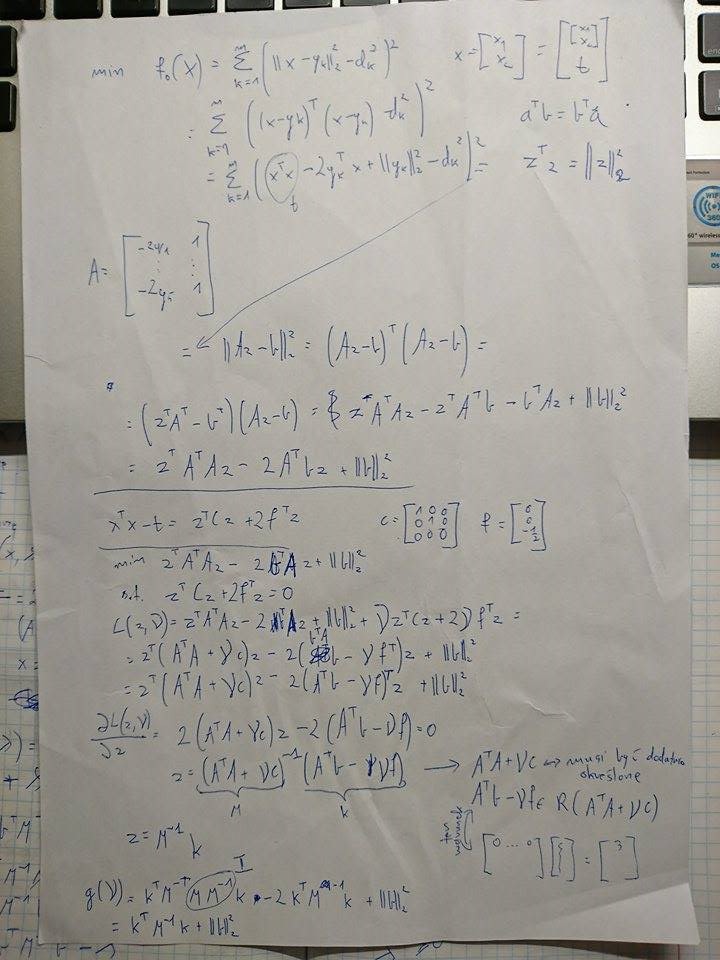 min f₀(x) = Σ_{k=1}^{m} (||x-y_k||₂² - d_k²)²   x = [x₁ x₂] = [[x₁ x₂] t]
= Σ_{k=1}^{m} ((x-y_k)ᵀ (x-y_k) - d_k²)²   aᵀb = bᵀa
= Σ_{k=1}^{m} ((xᵀx) - 2y_kᵀ x + ||y_k||₂² - d_k²)² =   zᵀz = ||z||₂²
t
A = [-2y₁ 1 ⋮ ⋮ -2y_n 1]
= ||Az-b||₂² = (Az-b)ᵀ (Az-b) =
= (zᵀAᵀ - bᵀ)(Az-b) = zᵀAᵀAz - zᵀAᵀb - bᵀAz + ||b||₂²
= zᵀAᵀAz - 2Aᵀbz + ||b||₂²
xᵀx-t = zᵀCz + 2fᵀz   C = [1 0 0 0 1 0 0 0 0]   f = [0 0 -1/2]
min zᵀAᵀAz - 2bᵀAz + ||b||₂²
s.t. zᵀCz + 2fᵀz = 0
L(z,ν) = zᵀAᵀAz - 2bᵀAz + ||b||₂² + νzᵀCz + 2νfᵀz =
= zᵀ(AᵀA + νC)z - 2(bᵀA - νfᵀ)z + ||b||₂²
= zᵀ(AᵀA + νC)z - 2(Aᵀb - νf)ᵀz + ||b||₂²
∂L(z,ν)/∂z = 2(AᵀA + νC)z - 2(Aᵀb - νf) = 0
z = (AᵀA + νC)⁻¹ (Aᵀb - νf) → AᵀA + νC ↔ musi być dodatnio
określone
M   k
Aᵀb - νf ∈ R(AᵀA + νC)
ten warunek
[0 … 0][ ] = [3]
z = M⁻¹k
I
g(ν) = kᵀM⁻ᵀMM⁻¹k - 2kᵀM⁻¹k + ||b||₂²
= kᵀM⁻¹k + ||b||₂²
WIFI
360